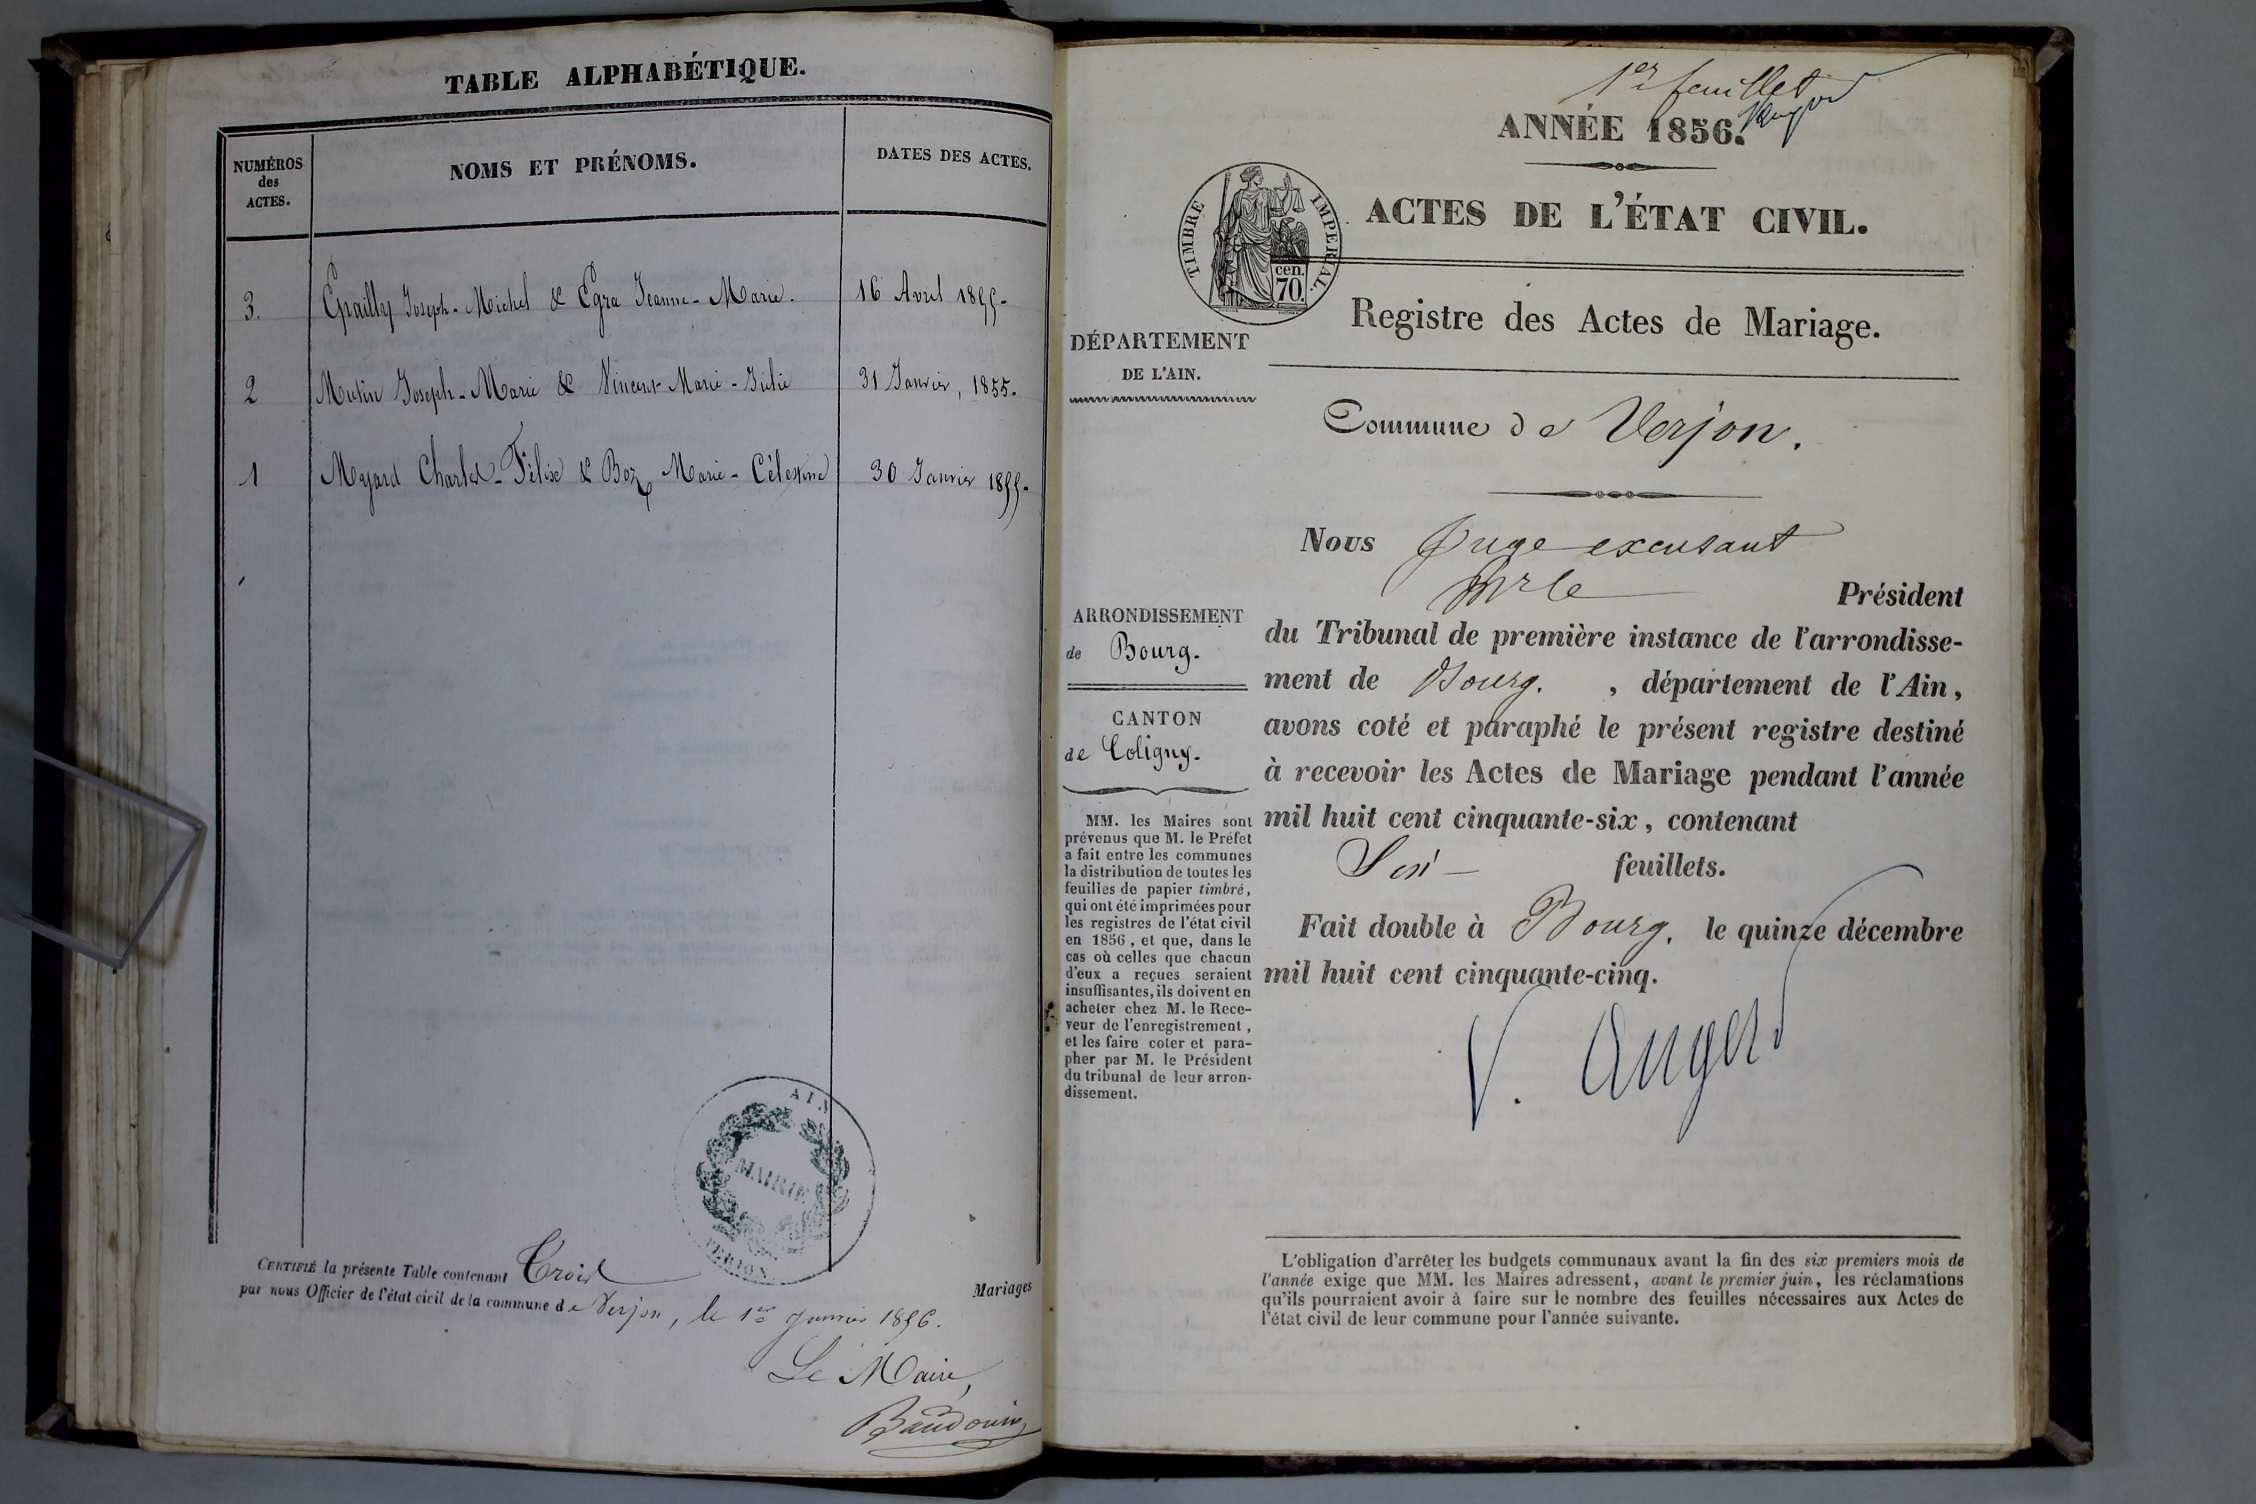 TABLE ALPHABÉTIQUE.
NUMÉROS
des
ACTES.
NOMS ET PRÉNOMS.
DATES DES ACTES.
3. Epailly Joseph-Michel & Egra Jeanne-Marie. 16 Avril 1855-
2 Mutin Joseph-Marie & Vincent Marie-Julie 31 Janvier, 1855.
1 Mayard Charles-Félix & Boz Marie-Célestine 30 Janvier 1855-
AIN
MAIRIE
VERJON
CERTIFIÉ la présente Table contenant Trois Mariages
par nous Officier de l'état civil de la commune de Verjon, le 1er Janvier 1856.
Le Maire,
Baudouin
1er feuillet
ANNÉE 1856.
TIMBRE IMPÉRIAL.
cen.
70.
ACTES DE L'ÉTAT CIVIL.
Registre des Actes de Mariage.
DÉPARTEMENT
DE L'AIN.
Commune de Verjon.
ARRONDISSEMENT
de Bourg.
CANTON
de Coligny.
MM. les Maires sont
prévenus que M. le Préfet
a fait entre les communes
la distribution de toutes les
feuilles de papier timbré,
qui ont été imprimées pour
les registres de l'état civil
en 1856, et que, dans le
cas où celles que chacun
d'eux a reçues seraient
insuffisantes, ils doivent en
acheter chez M. le Rece-
veur de l'enregistrement,
et les faire coter et para-
pher par M. le Président
du tribunal de leur arron-
dissement.
Nous Juge excusant
Mr le Président
du Tribunal de première instance de l'arrondisse-
ment de Bourg. , département de l'Ain,
avons coté et paraphé le présent registre destiné
à recevoir les Actes de Mariage pendant l'année
mil huit cent cinquante-six, contenant
Six feuillets.
Fait double à Bourg. le quinze décembre
mil huit cent cinquante-cinq.
V. Auger
L'obligation d'arrêter les budgets communaux avant la fin des six premiers mois de
l'année exige que MM. les Maires adressent, avant le premier juin, les réclamations
qu'ils pourraient avoir à faire sur le nombre des feuilles nécessaires aux Actes de
l'état civil de leur commune pour l'année suivante.